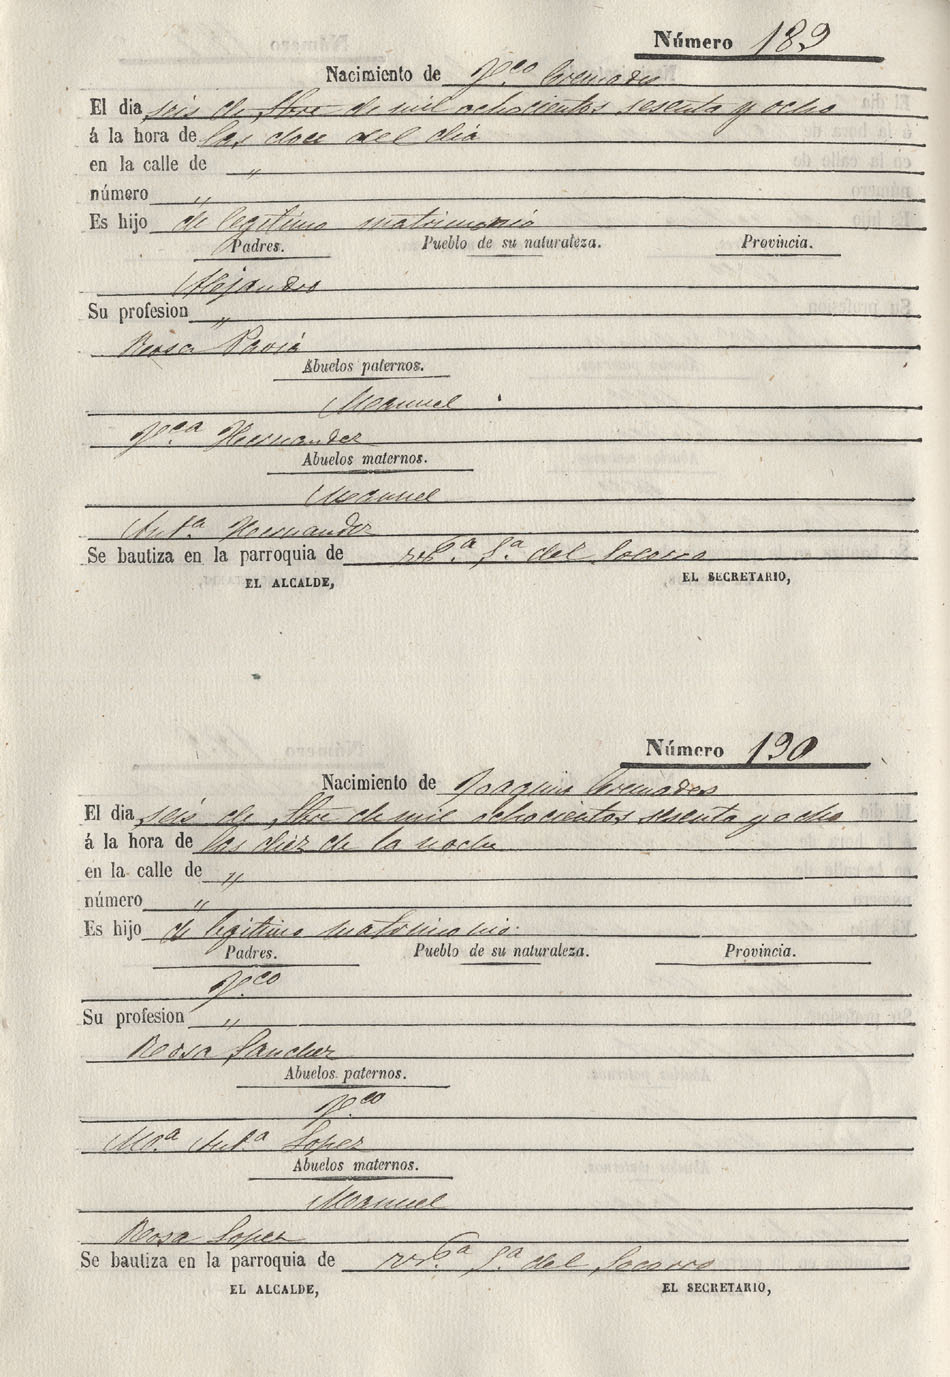 Número 189
Nacimiento de Fco Cremades
El dia seis de Obre de mil ochocientos sesenta y ocho
á la hora de las doce del dia
en la calle de "
número "
Es hijo de legitimo matrimonio
Padres. Pueblo de su naturaleza. Provincia.
Alejandro
Su profesion "
Rosa Pavia
Abuelos paternos.
Manuel
Fca Hernandez
Abuelos maternos.
Manuel
Anta Hernandez
Se bautiza en la parroquia de Sa del Socorro
EL ALCALDE, EL SECRETARIO,
Número 190
Nacimiento de Joaquin Cremades
El dia seis de Obre de mil ochocientos sesenta y ocho
á la hora de las diez de la noche
en la calle de "
número "
Es hijo de legitimo matrimonio.
Padres. Pueblo de su naturaleza. Provincia.
Fco
Su profesion "
Rosa Sanchez
Abuelos paternos.
Fco
Ma Anta Lopez
Abuelos maternos.
Manuel
Rosa Lopez
Se bautiza en la parroquia de Sa del Socorro
EL ALCALDE, EL SECRETARIO,